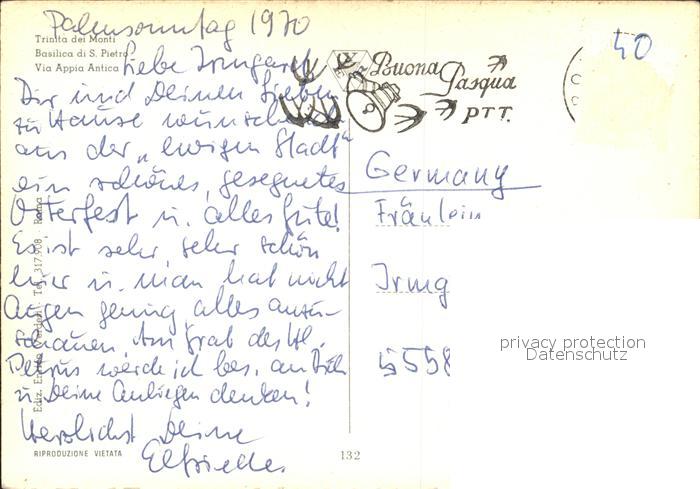 Palmsonntag 1970
Trinità dei Monti
Basilica di S. Pietro
Via Appia Antica
Liebe Irmgard
Dir und Deinen Lieben
zu Hause wünsche
aus der „ewigen Stadt"
ein schönes, gesegnetes
Osterfest u. alles Gute!
Es ist sehr, sehr schön
hier u. man hat nicht
Augen genug, alles anzu-
schauen. Am Grab des Hl.
Petrus werde ich bes. an Dich
u. Deine Anliegen denken!
Herzlichst Deine
Elfriede.
RIPRODUZIONE VIETATA
132
Ediz. Tel. 317.908 Roma
Buona Pasqua
PTT.
40
Germany
Fräulein
Irmg
5558
privacy protection
Datenschutz